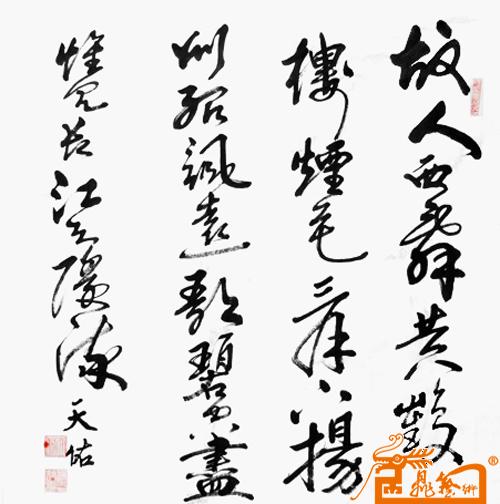 故人西辭黄鶴
樓煙花三月下揚
州孤帆遠影碧空盡
惟見長江天際流
天佑